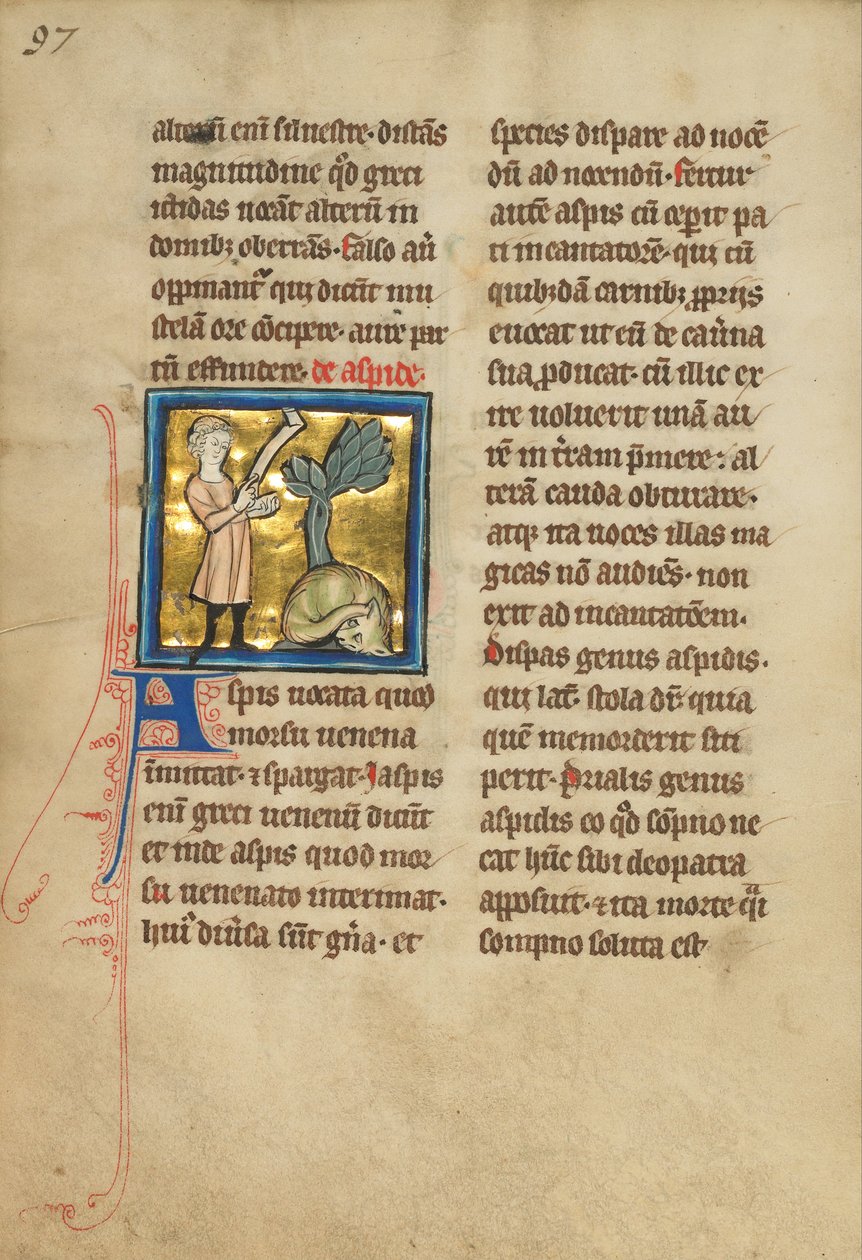 97
alterū enī siluestre· distās
magnitudine qͦd greci
ictidas uocāt alterū in
domibꝫ oberrās· falso aū
oppinantᷣ qui dicūt mu
stelā ore cōcipere· aure par
tū effundere· de aspide·
Aspis uocata quod
morsu uenena
īmittat· ⁊ spargat· Jaspis
enī greci uenenū dicūt
et inde aspis quod mor
su uenenato interimat·
huiᷣ diu͛sa sūt gn̄a· et
species dispare ad nocē
dū ad nocendū· fertur
autē aspis cū ceꝑit pa
ti incantatorē· qui cū
quibꝫdā carnibꝫ ꝓprijs
euocat ut eū de cau͛na
sua ꝓducat· cū illic ex
ire uoluerit unā au
rē in t͛ram p̄mere· al
terā cauda obturare·
atqꝫ ita uoces illas ma
gicas nō audiēs· non
exit ad incantatōem·
Dispas genus aspidis·
qui lat̄· stola dr̄· quia
quē memorderit siti
perit· Prialis genus
aspidis eo qͦd sōpno ne
cat hūc sibi cleopatra
apposuit· ⁊ ita morte qᷓi
sompno soluta est